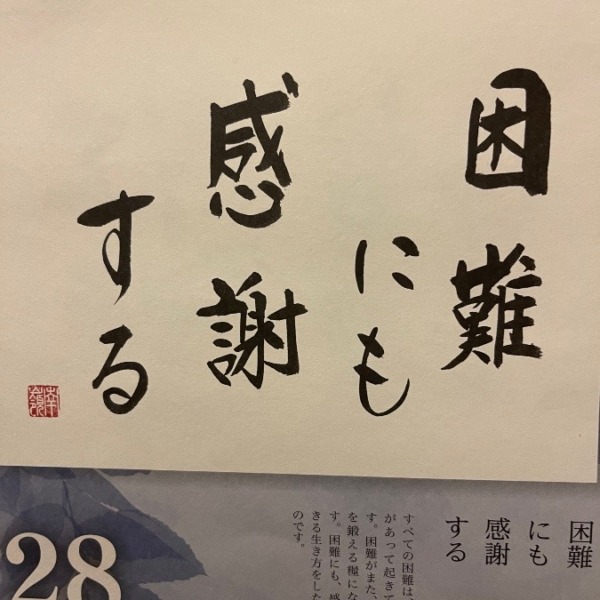 困難
にも
感謝
する
困難
にも
感謝
する
すべての困難は、
があって起きて
す。困難がまた、
を鍛える糧にな
す。困難にも、感
きる生き方をした
のです。
28